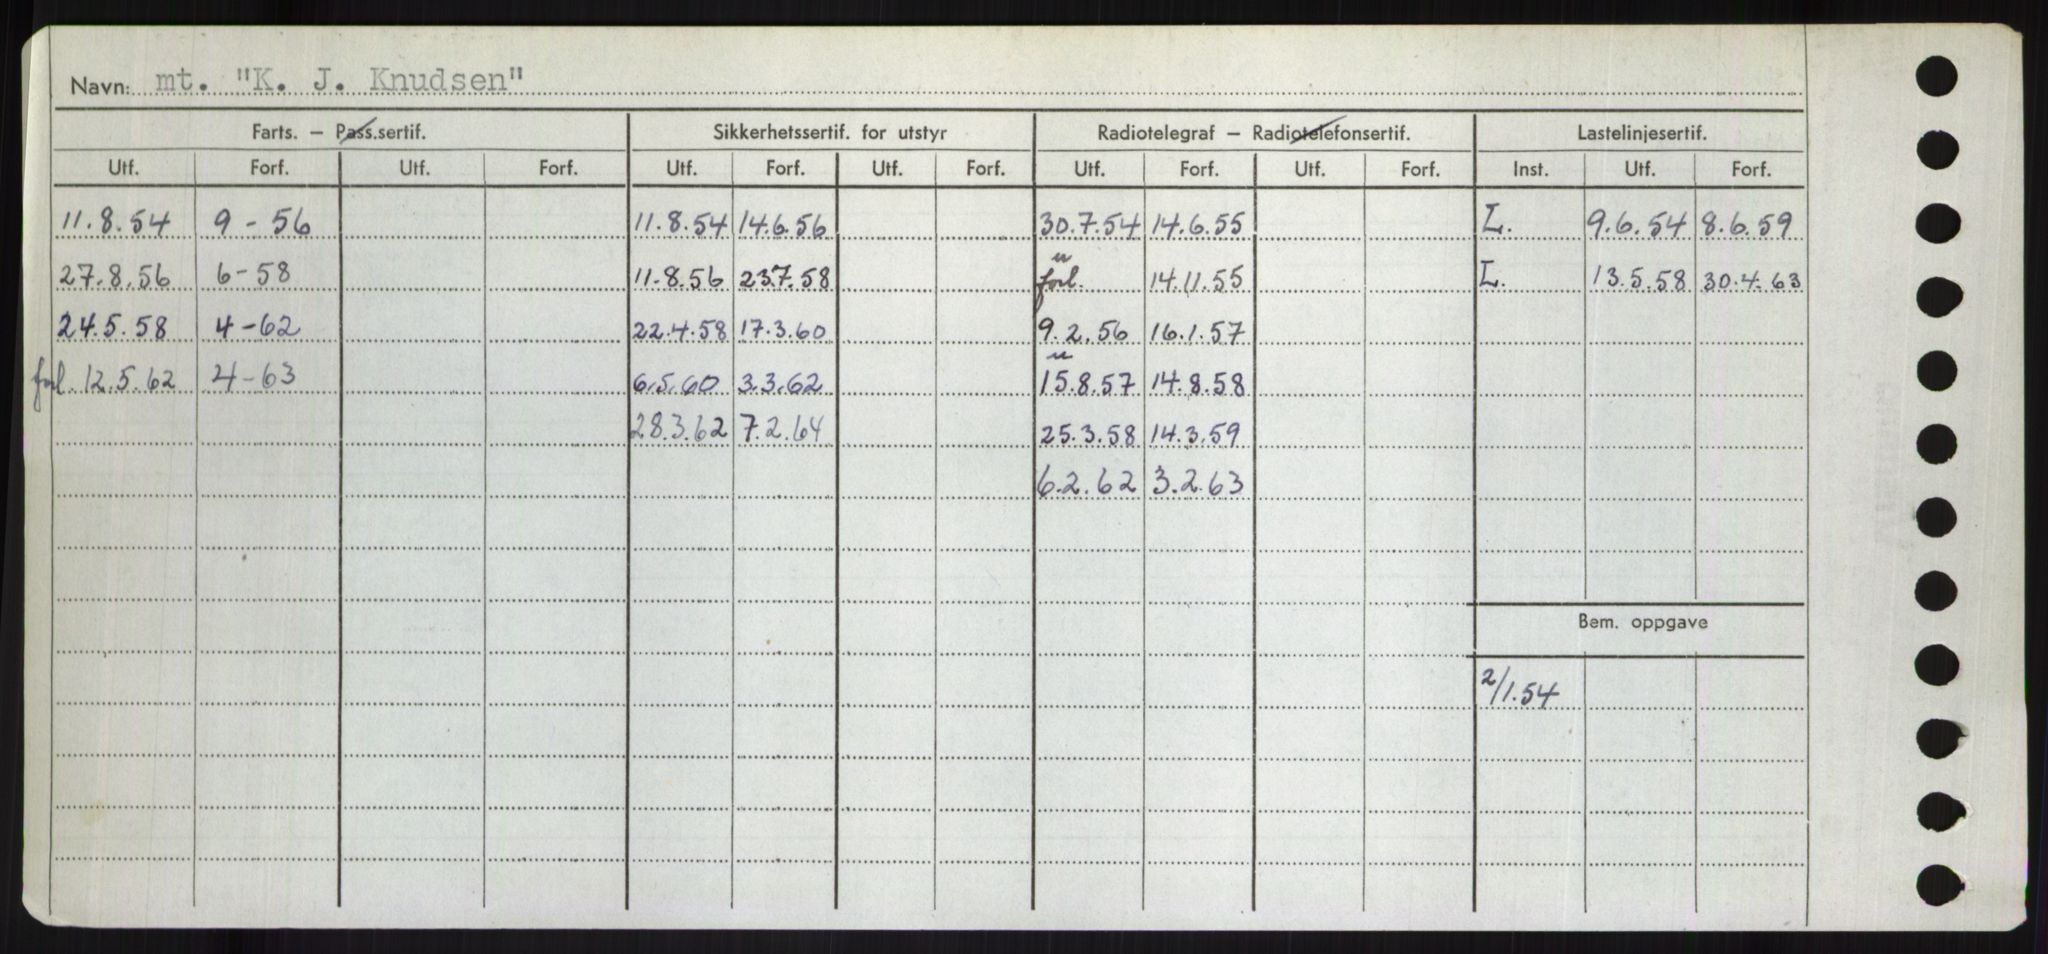 Navn: mt. "K. J. Knudsen"
Farts. — Pass.sertif. Sikkerhetssertif. for utstyr Radiotelegraf — Radiotelefonsertif. Lastelinjesertif.
Utf. Forf. Utf. Forf. Utf. Forf. Utf. Forf. Utf. Forf. Utf. Forf. Inst. Utf. Forf.
11.8.54 9-56 11.8.54 14.6.56 30.7.54 14.6.55 L. 9.6.54 8.6.59
27.8.56 6-58 11.8.56 23.7.58 " forl. 14.11.55 L. 13.5.58 30.4.63
24.5.58 4-62 22.4.58 17.3.60 9.2.56 16.1.57
forl. 12.5.62 4-63 6.5.60 3.3.62 " 15.8.57 14.8.58
28.3.62 7.2.64 25.3.58 14.3.59
6.2.62 3.2.63
Bem. oppgave
2/1.54